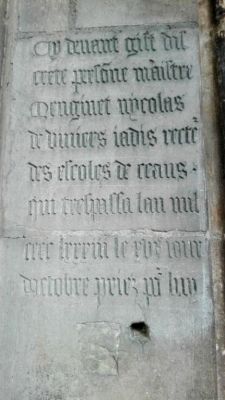 Cy devant gist dis
crete persone maistre
Menginet nycolas
de viviers iadis rectē
des escoles de ceans ·
qui trespassa lan mil
cccc lxxxiii le xvi iour
doctobre priez pᵒ luy